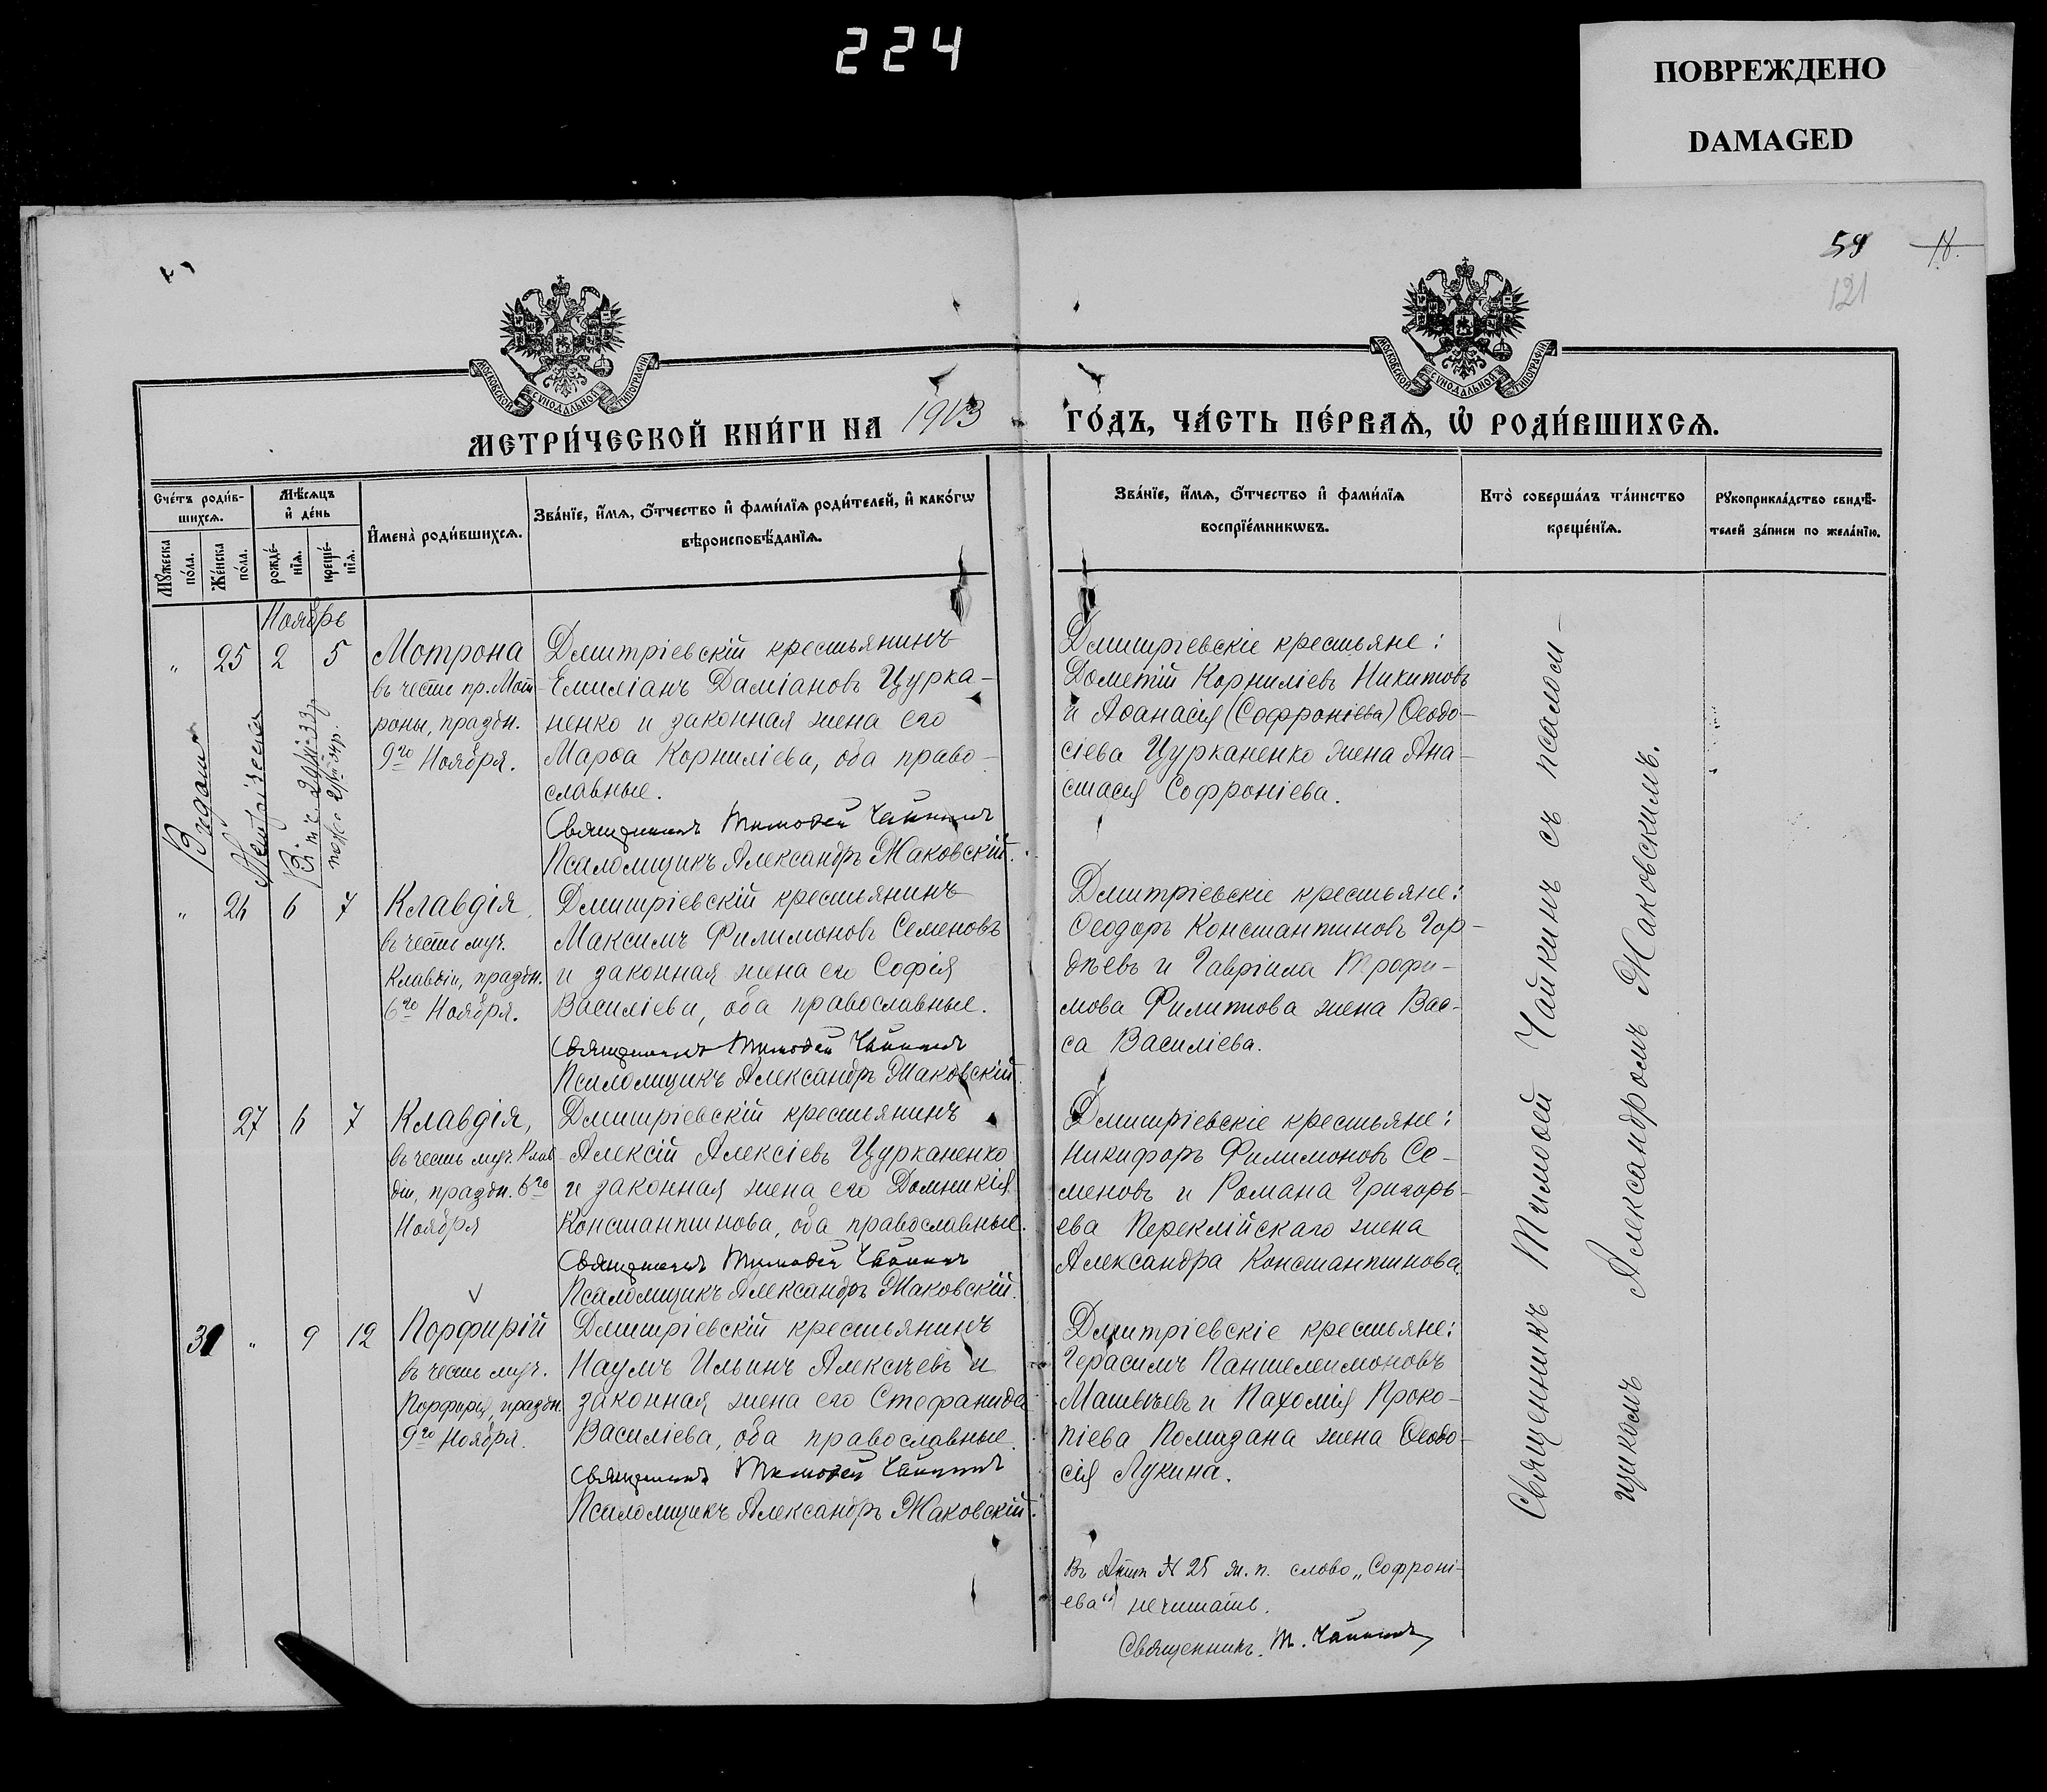 224
ПОВРЕЖДЕНО
DAMAGED
59
18.
121
МОСКОВСКОЙ СѴНОДАЛЬНОЙ ТИПОГРАФІИ
МОСКОВСКОЙ СѴНОДАЛЬНОЙ ТИПОГРАФІИ
МЕТРИ́ЧЕСКОЙ КНИ́ГИ НА 1913 ГО́ДЪ, ЧА́СТЬ ПЕ́РВАѦ, Ѡ҆ РОДИ́ВШИХСѦ.
Сче́тъ роди́в-
шихсѧ.
Мꙋ́жеска по́ла.
Же́нска по́ла.
Мѣ́сѧцъ
и҆ де́нь
рожде́-
нїѧ.
креще́-
нїѧ.
И҆мена̀ роди́вшихсѧ.
Зва́нїе, и҆́мѧ, ѻ҆́тчество и҆ фами́лїѧ роди́телей, и҆ како́гѡ
вѣроисповѣ́данїѧ.
Зва́нїе, и҆́мѧ, ѻ҆́тчество и҆ фами́лїѧ
воспрїе́мникѡвъ.
Кто̀ соверша́лъ та́инство
креще́нїѧ.
Рꙋкоприкла́дство свидѣ́-
телей за́писи по жела́нїю.
Ноябрь
" 25 2 5
Мотрона
въ честь пр. Мот
роны, праздн.
9го Ноября.
Дмитріевскій крестьянинъ
Емиліанъ Даміановъ Цурка-
ненко и законная жена его
Марѳа Корниліева, оба право-
славные.
Священникъ Тимоѳей Чайкинъ
Псаломщикъ Александръ Маковскій.
Дмитріевскіе крестьяне:
Дометій Корниліевъ Никитовъ
и Аѳанасія (Софроніева) Ѳеодо-
сіева Цурканенко жена Ана-
стасія Софроніева.
Выдана
" 26 6 7
Клавдія,
въ честь муч.
Клавдіи, праздн.
6го Ноября.
Дмитріевскій крестьянинъ
Максимъ Филимоновъ Семеновъ
и законная жена его Софія
Василіева, оба православные.
Священникъ Тимоѳей Чайкинъ
Псаломщикъ Александръ Маковскій.
Дмитріевскіе крестьяне:
Ѳеодоръ Константиновъ Гор-
дѣевъ и Гавріила Трофи-
мова Филиппова жена Вас-
са Василіева.
27 6 7
Клавдія,
въ честь муч. Клав
діи, праздн. 6го
Ноября
Дмитріевскій крестьянинъ
Алексій Алексіевъ Цурканенко
и законная жена его Домникія
Константинова, оба православные.
Священникъ Тимоѳей Чайкинъ
Псаломщикъ Александръ Маковскій.
Дмитріевскіе крестьяне:
Никифоръ Филимоновъ Се-
меновъ и Романа Григорь-
ева Переклійскаго жена
Александра Константинова.
31 " 9 12
Порфирій
въ честь муч.
Порфирія, праздн.
9го Ноября.
Дмитріевскій крестьянинъ
Наумъ Ильинъ Алексѣевъ и
законная жена его Стефанида
Василіева, оба православные.
Священникъ Тимоѳей Чайкинъ
Псаломщикъ Александръ Маковскій.
Дмитріевскіе крестьяне:
Герасимъ Пантелеимоновъ
Матвѣевъ и Пахомія Проко-
піева Помазана жена Ѳеодо-
сія Лукина.
Священникъ Тимоѳей Чайкинъ съ псалом-
щикомъ Александромъ Маковскимъ.
Въ Актѣ № 25 ж. п. слово „Софроні-
ева" нечитать.
Священникъ. Т. Чайкинъ